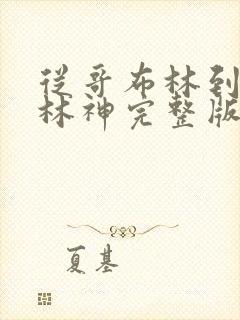 從哥布林到
林神完整版
夏基